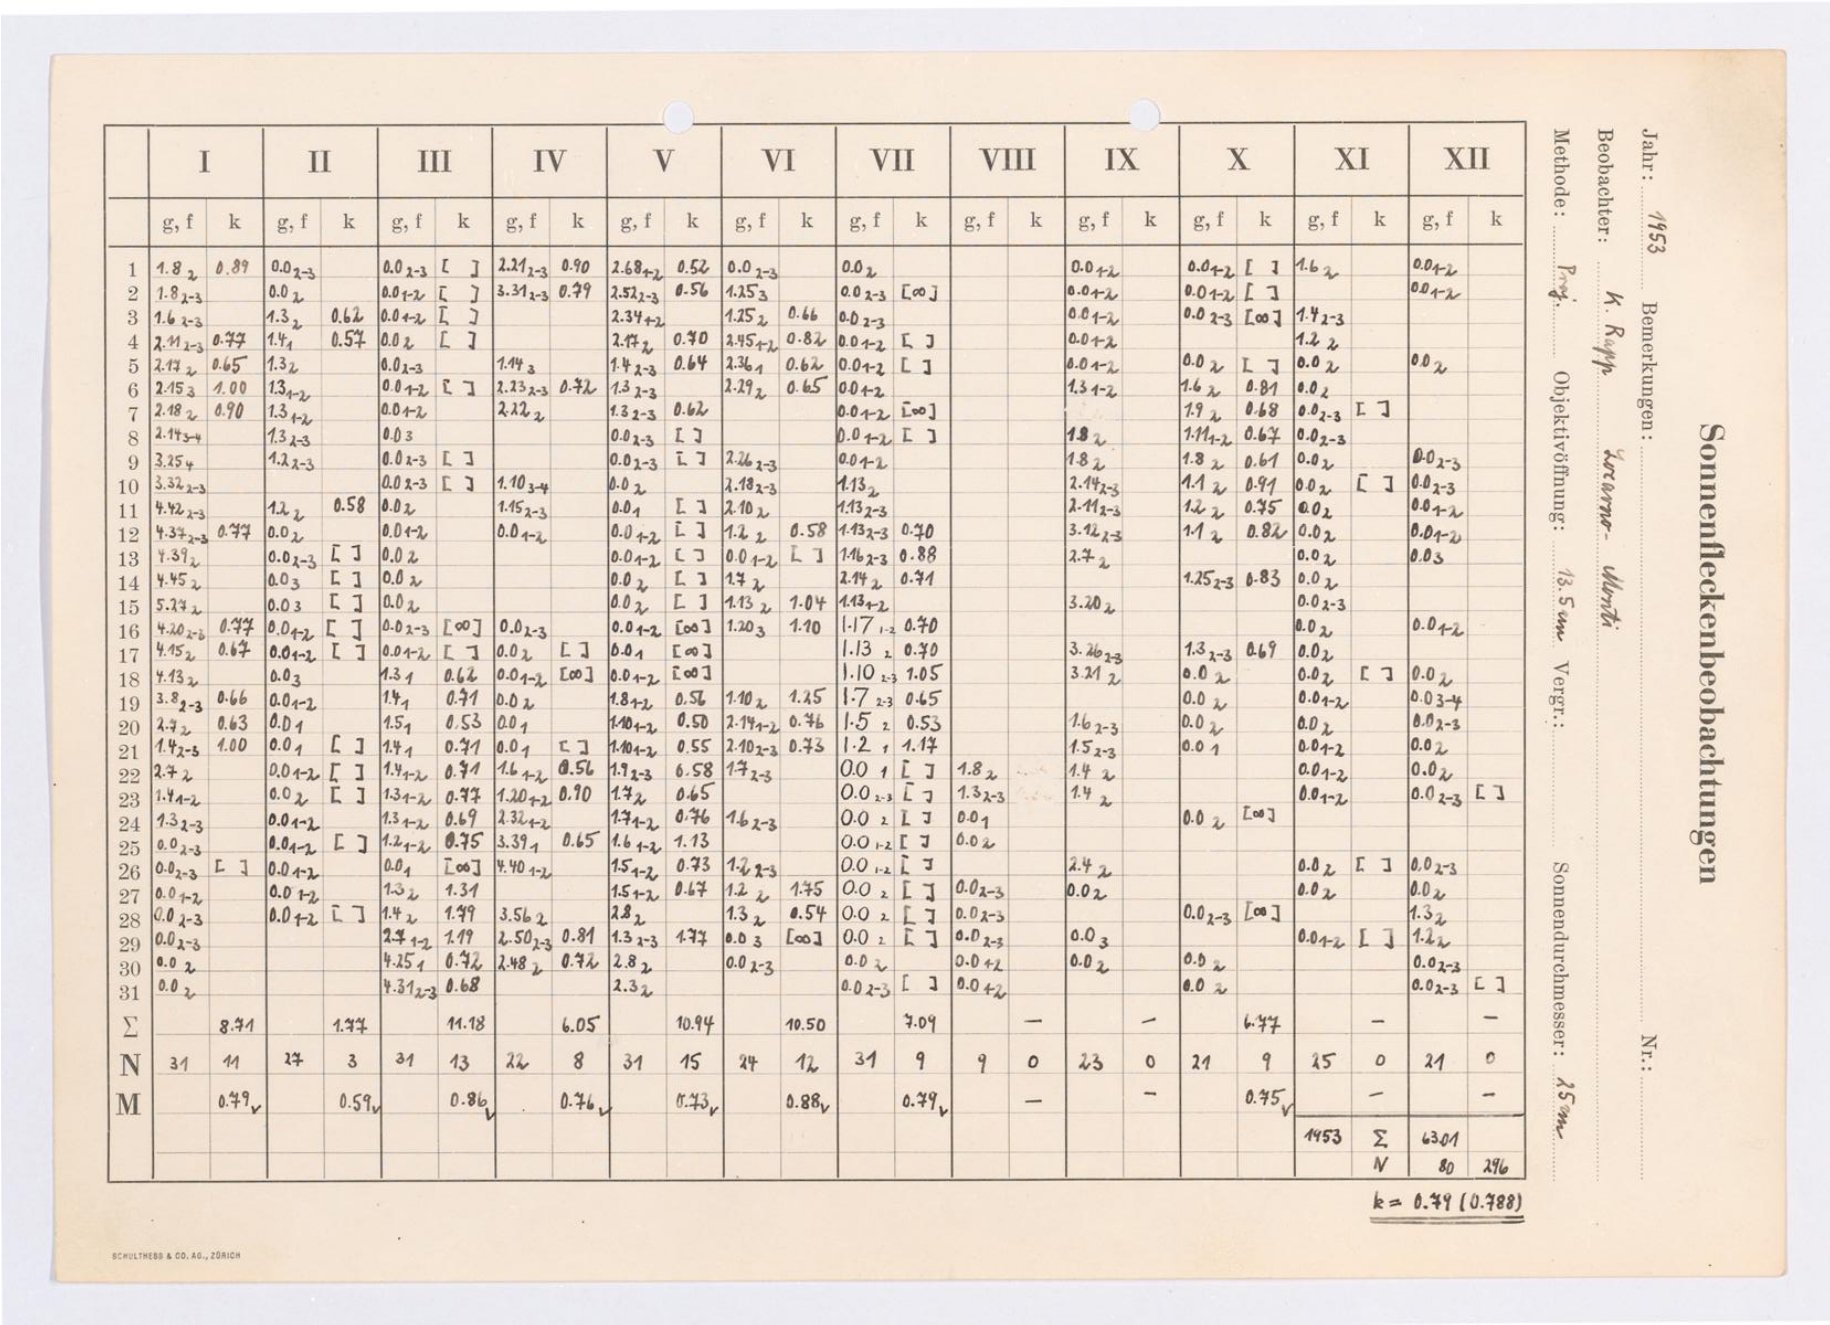 Sonnenfleckenbeobachtungen
Jahr: 1953 Bemerkungen: Nr.:
Beobachter: K. Rapp Locarno-Monti
Methode: Proj. Objektivöffnung: 13.5 cm Vergr.: Sonnendurchmesser: 25 cm
I II III IV V VI VII VIII IX X XI XII
g, f k g, f k g, f k g, f k g, f k g, f k g, f k g, f k g, f k g, f k g, f k g, f k
1 1.8 2 0.89 0.0 2-3 0.0 2-3 [ ] 2.21 2-3 0.90 2.68 1-2 0.52 0.0 2-3 0.0 2 0.0 1-2 0.0 1-2 [ ] 1.6 2 0.0 1-2
2 1.8 2-3 0.0 2 0.0 1-2 [ ] 3.31 2-3 0.79 2.52 2-3 0.56 1.25 3 0.0 2-3 [∞] 0.0 1-2 0.0 1-2 [ ] 0.0 1-2
3 1.6 2-3 1.3 2 0.62 0.0 1-2 [ ] 2.34 1-2 1.25 2 0.66 0.0 2-3 0.0 1-2 0.0 2-3 [∞] 1.4 2-3
4 2.11 2-3 0.77 1.4 1 0.57 0.0 2 [ ] 2.17 2 0.70 2.45 1-2 0.82 0.0 1-2 [ ] 0.0 1-2 1.2 2
5 2.17 2 0.65 1.3 2 0.0 2-3 1.14 3 1.4 2-3 0.64 2.36 1 0.62 0.0 1-2 [ ] 0.0 1-2 0.0 2 [ ] 0.0 2 0.0 2
6 2.15 3 1.00 1.3 1-2 0.0 1-2 [ ] 2.23 2-3 0.72 1.3 2-3 2.29 2 0.65 0.0 1-2 1.3 1-2 1.6 2 0.81 0.0 2
7 2.18 2 0.90 1.3 1-2 0.0 1-2 2.22 2 1.3 2-3 0.62 0.0 1-2 [∞] 1.9 2 0.68 0.0 2-3 [ ]
8 2.14 3-4 1.3 2-3 0.0 3 0.0 2-3 [ ] 0.0 1-2 [ ] 1.8 2 1.11 1-2 0.67 0.0 2-3
9 3.25 4 1.2 2-3 0.0 2-3 [ ] 0.0 2-3 [ ] 2.26 2-3 0.0 1-2 1.8 2 1.8 2 0.61 0.0 2 0.0 2-3
10 3.32 2-3 0.0 2-3 [ ] 1.10 3-4 0.0 2 2.18 2-3 1.13 2 2.14 2-3 1.1 2 0.91 0.0 2 [ ] 0.0 2-3
11 4.42 2-3 1.2 2 0.58 0.0 2 1.15 2-3 0.0 1 [ ] 2.10 2 1.13 2-3 2.11 2-3 1.2 2 0.75 0.0 2 0.0 1-2
12 4.37 2-3 0.77 0.0 2 0.0 1-2 0.0 1-2 0.0 1-2 [ ] 1.2 2 0.58 1.13 2-3 0.70 3.12 2-3 1.1 2 0.82 0.0 2 0.0 1-2
13 4.39 2 0.0 2-3 [ ] 0.0 2 0.0 1-2 [ ] 0.0 1-2 [ ] 1.16 2-3 0.88 2.7 2 0.0 2 0.0 3
14 4.45 2 0.0 3 [ ] 0.0 2 0.0 2 [ ] 1.7 2 2.14 2 0.71 1.25 2-3 0.83 0.0 2
15 5.27 2 0.0 3 [ ] 0.0 2 0.0 2 [ ] 1.13 2 1.04 1.13 1-2 3.20 2 0.0 2-3
16 4.20 2-3 0.77 0.0 1-2 [ ] 0.0 2-3 [∞] 0.0 2-3 0.0 1-2 [∞] 1.20 3 1.10 1.17 1-2 0.70 0.0 2 0.0 1-2
17 4.15 2 0.67 0.0 1-2 [ ] 0.0 1-2 [ ] 0.0 2 [ ] 0.0 1 [∞] 1.13 2 0.70 3.26 2-3 1.3 2-3 0.69 0.0 2
18 4.13 2 0.0 3 1.3 1 0.62 0.0 1-2 [∞] 0.0 1-2 [∞] 1.10 2-3 1.05 3.21 2 0.0 2 0.0 2 [ ] 0.0 2
19 3.8 2-3 0.66 0.0 1-2 1.4 1 0.71 0.0 2 1.8 1-2 0.56 1.10 2 1.25 1.7 2-3 0.65 0.0 2 0.0 1-2 0.0 3-4
20 2.7 2 0.63 0.0 1 1.5 1 0.53 0.0 1 1.10 1-2 0.50 2.14 1-2 0.76 1.5 2 0.53 1.6 2-3 0.0 2 0.0 2 0.0 2-3
21 1.4 2-3 1.00 0.0 1 [ ] 1.4 1 0.71 0.0 1 [ ] 1.10 1-2 0.55 2.10 2-3 0.73 1.2 1 1.17 1.5 2-3 0.0 1 0.0 1-2 0.0 2
22 2.7 2 0.0 1-2 [ ] 1.4 1-2 0.71 1.6 1-2 0.56 1.9 2-3 0.58 1.7 2-3 0.0 1 [ ] 1.8 2 1.4 2 0.0 1-2 0.0 2
23 1.4 1-2 0.0 2 [ ] 1.3 1-2 0.77 1.20 1-2 0.90 1.7 2 0.65 0.0 2-3 [ ] 1.3 2-3 1.4 2 0.0 1-2 0.0 2-3 [ ]
24 1.3 2-3 0.0 1-2 1.3 1-2 0.69 2.32 1-2 1.7 1-2 0.76 1.6 2-3 0.0 2 [ ] 0.0 1 0.0 2 [∞]
25 0.0 2-3 0.0 1-2 [ ] 1.2 1-2 0.75 3.39 1 0.65 1.6 1-2 1.13 0.0 1-2 [ ] 0.0 2
26 0.0 2-3 [ ] 0.0 1-2 0.0 1 [∞] 4.40 1-2 1.5 1-2 0.73 1.2 2-3 0.0 1-2 [ ] 2.4 2 0.0 2 [ ] 0.0 2-3
27 0.0 1-2 0.0 1-2 1.3 2 1.31 1.5 1-2 0.67 1.2 2 1.75 0.0 2 [ ] 0.0 2-3 0.0 2 0.0 2 0.0 2
28 0.0 2-3 0.0 1-2 [ ] 1.4 2 1.79 3.56 2 2.8 2 1.3 2 0.54 0.0 2 [ ] 0.0 2-3 0.0 2-3 [∞] 1.3 2
29 0.0 2-3 2.7 1-2 1.19 2.50 2-3 0.81 1.3 2-3 1.77 0.0 3 [∞] 0.0 2 [ ] 0.0 2-3 0.0 3 0.0 1-2 [ ] 1.2 2
30 0.0 2 4.25 1 0.72 2.48 2 0.72 2.8 2 0.0 2-3 0.0 2 0.0 1-2 0.0 2 0.0 2 0.0 2-3
31 0.0 2 4.31 2-3 0.68 2.3 2 0.0 2-3 [ ] 0.0 1-2 0.0 2 0.0 2-3 [ ]
Σ 8.71 1.77 11.18 6.05 10.94 10.50 7.09 — — 6.77 — —
N 31 11 27 3 31 13 22 8 31 15 24 12 31 9 9 0 23 0 21 9 25 0 21 0
M 0.79 0.59 0.86 0.76 0.73 0.88 0.79 — — 0.75 — —
1953 Σ 63.01
N 80 296
k = 0.79 (0.788)
SCHULTHESS & CO. AG., ZÜRICH